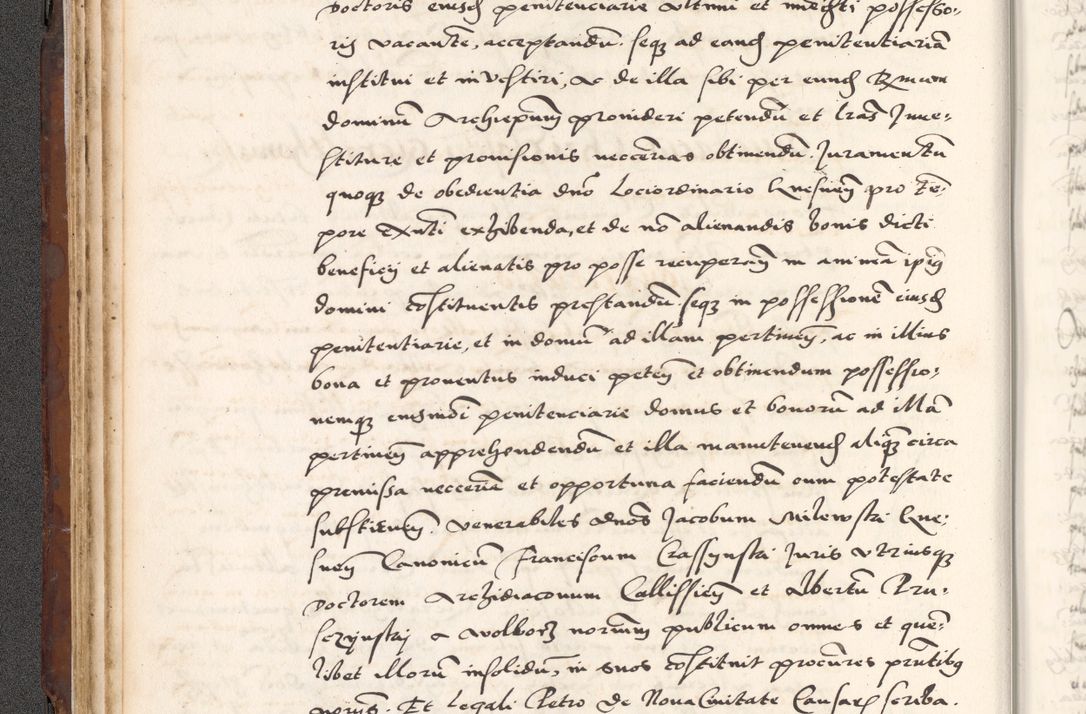 doctoris eiusdẽ penitenciarie ultimi et imediti possesso-
ris vacantẽ, acceptandũ. seqz ad eandẽ penitentiariã
institui et investiri, ac de illa sibi per eundẽ Rmum
dominũ Archiepum̃ provideri petendũ et lras Inve-
stiture et provisionis neccerias obtinendũ. Juramentũ
quoqz de obedientia dnõ Lociordinario Gnesneñ pro tẽ-
pore exñti exhibenda, et de nõ alienandis bonis dicti
beneficij et alienatis pro posse recuperañ in animã ipiũ
domini cõstituentis prestandũ. seqz in possessionẽ eiusdẽ
penitentiarie, et in domũ ad illam pertineñ, ac in illius
bona et proventus induci peteñ et obtinendum possessio-
nemqz eiusmõi penitenciarie domus et bonorũ ad illã
pertineñ apprehendendũ et illa manutenendẽ aliaqz circa
premissa neccera et opportuna faciendũ cum potestate
substituendi. Venerabiles dnos Jacobum Milewski Gne-
sneñ Canonicũ Franciscum Crassynski Juris Utriusqz
doctorem Archidiaconum Callissieñ et Albertũ Pru-
sczynski a Wolborz notarium publicum omnes et quẽ-
libet illorũ insolidũ, in suos cõstituit procures pñtibus
notũs. Et Legali Petro de Nova Civitate Causarũ scriba.